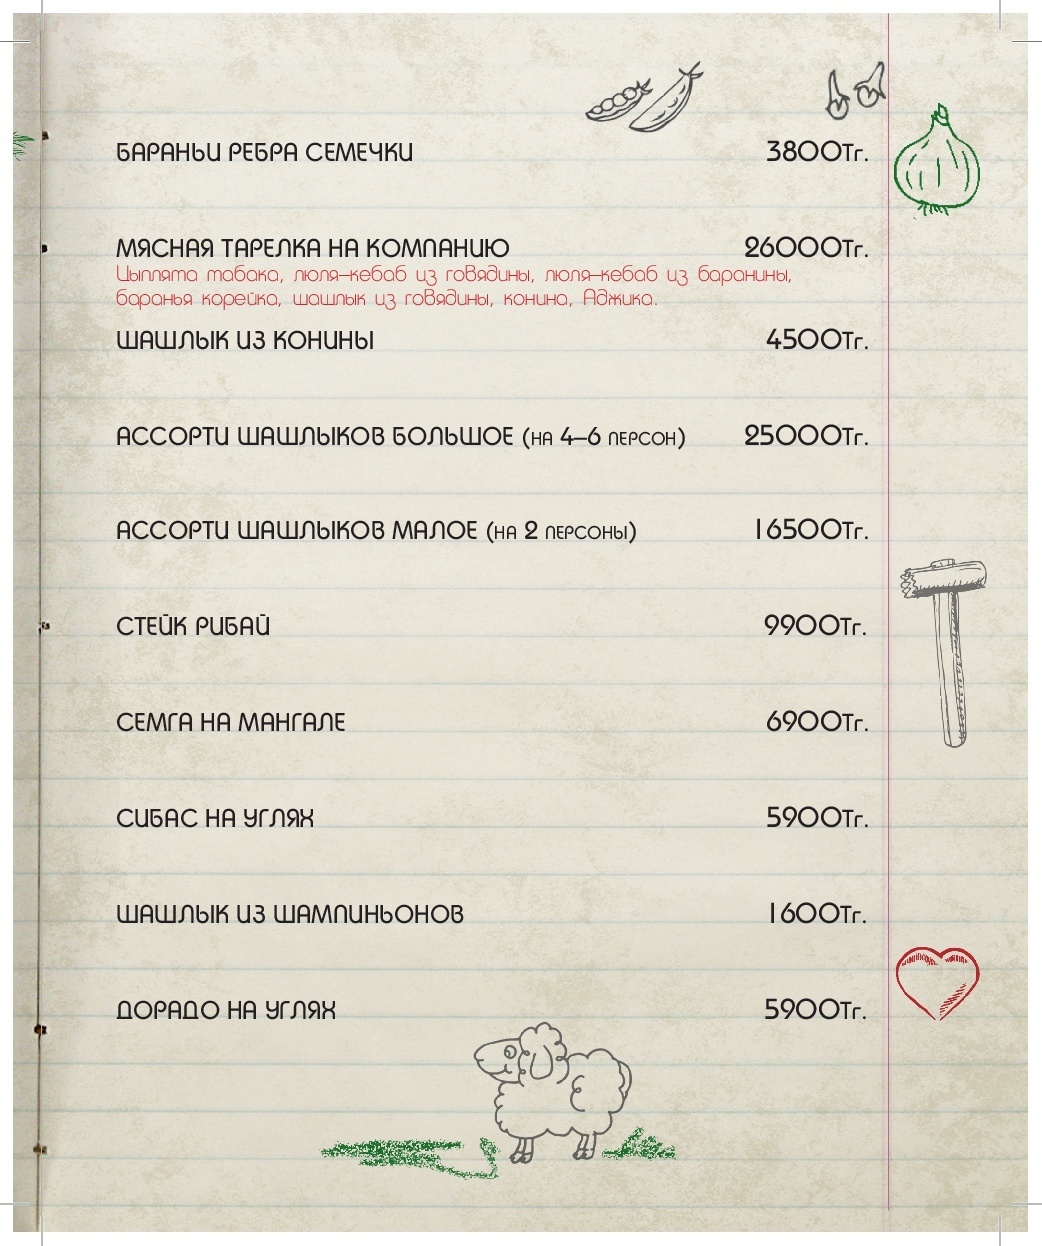 БАРАНЬИ РЕБРА СЕМЕЧКИ 3800Тг.
МЯСНАЯ ТАРЕЛКА НА КОМПАНИЮ 26000Тг.
Цыплята табака, люля-кебаб из говядины, люля-кебаб из баранины,
баранья корейка, шашлык из говядины, конина, Аджика.
ШАШЛЫК ИЗ КОНИНЫ 4500Тг.
АССОРТИ ШАШЛЫКОВ БОЛЬШОЕ (НА 4-6 ПЕРСОН) 25000Тг.
АССОРТИ ШАШЛЫКОВ МАЛОЕ (НА 2 ПЕРСОНЫ) 16500Тг.
СТЕЙК РИБАЙ 9900Тг.
СЕМГА НА МАНГАЛЕ 6900Тг.
СИБАС НА УГЛЯХ 5900Тг.
ШАШЛЫК ИЗ ШАМПИНЬОНОВ 1600Тг.
ДОРАДО НА УГЛЯХ 5900Тг.